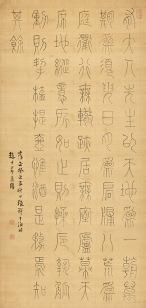 有大人先生以天地為一朝萬
期為須臾日月為扃牖八荒為
庭衢行無轍跡居無室廬幕天
席地縱意所如止則操卮執觚
動則挈榼提壺惟酒是務焉知
其餘